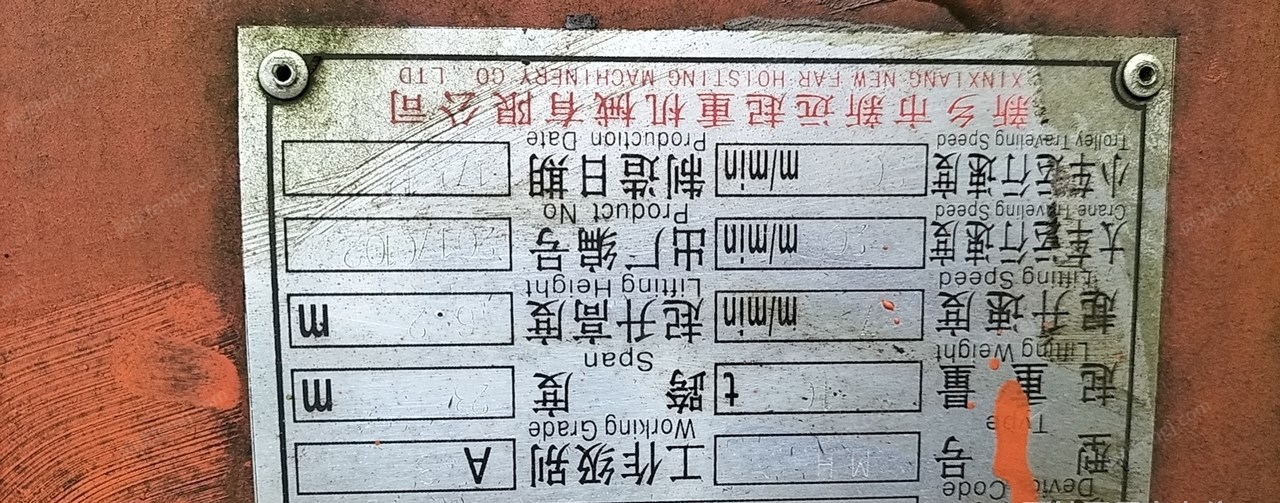 Device Code
型号 MH 工作级别 A
Type Working Grade
起重量 t 跨度 m
Lifting Weight Span
起升速度 m/min 起升高度 m
Lifting Speed Lifting Height
大车运行速度 m/min 出厂编号
Crane Traveling Speed Product No
小车运行速度 m/min 制造日期
Trolley Traveling Speed Production Date
新乡市新远起重机械有限公司
XINXIANG NEW FAR HOISTING MACHINERY CO., LTD